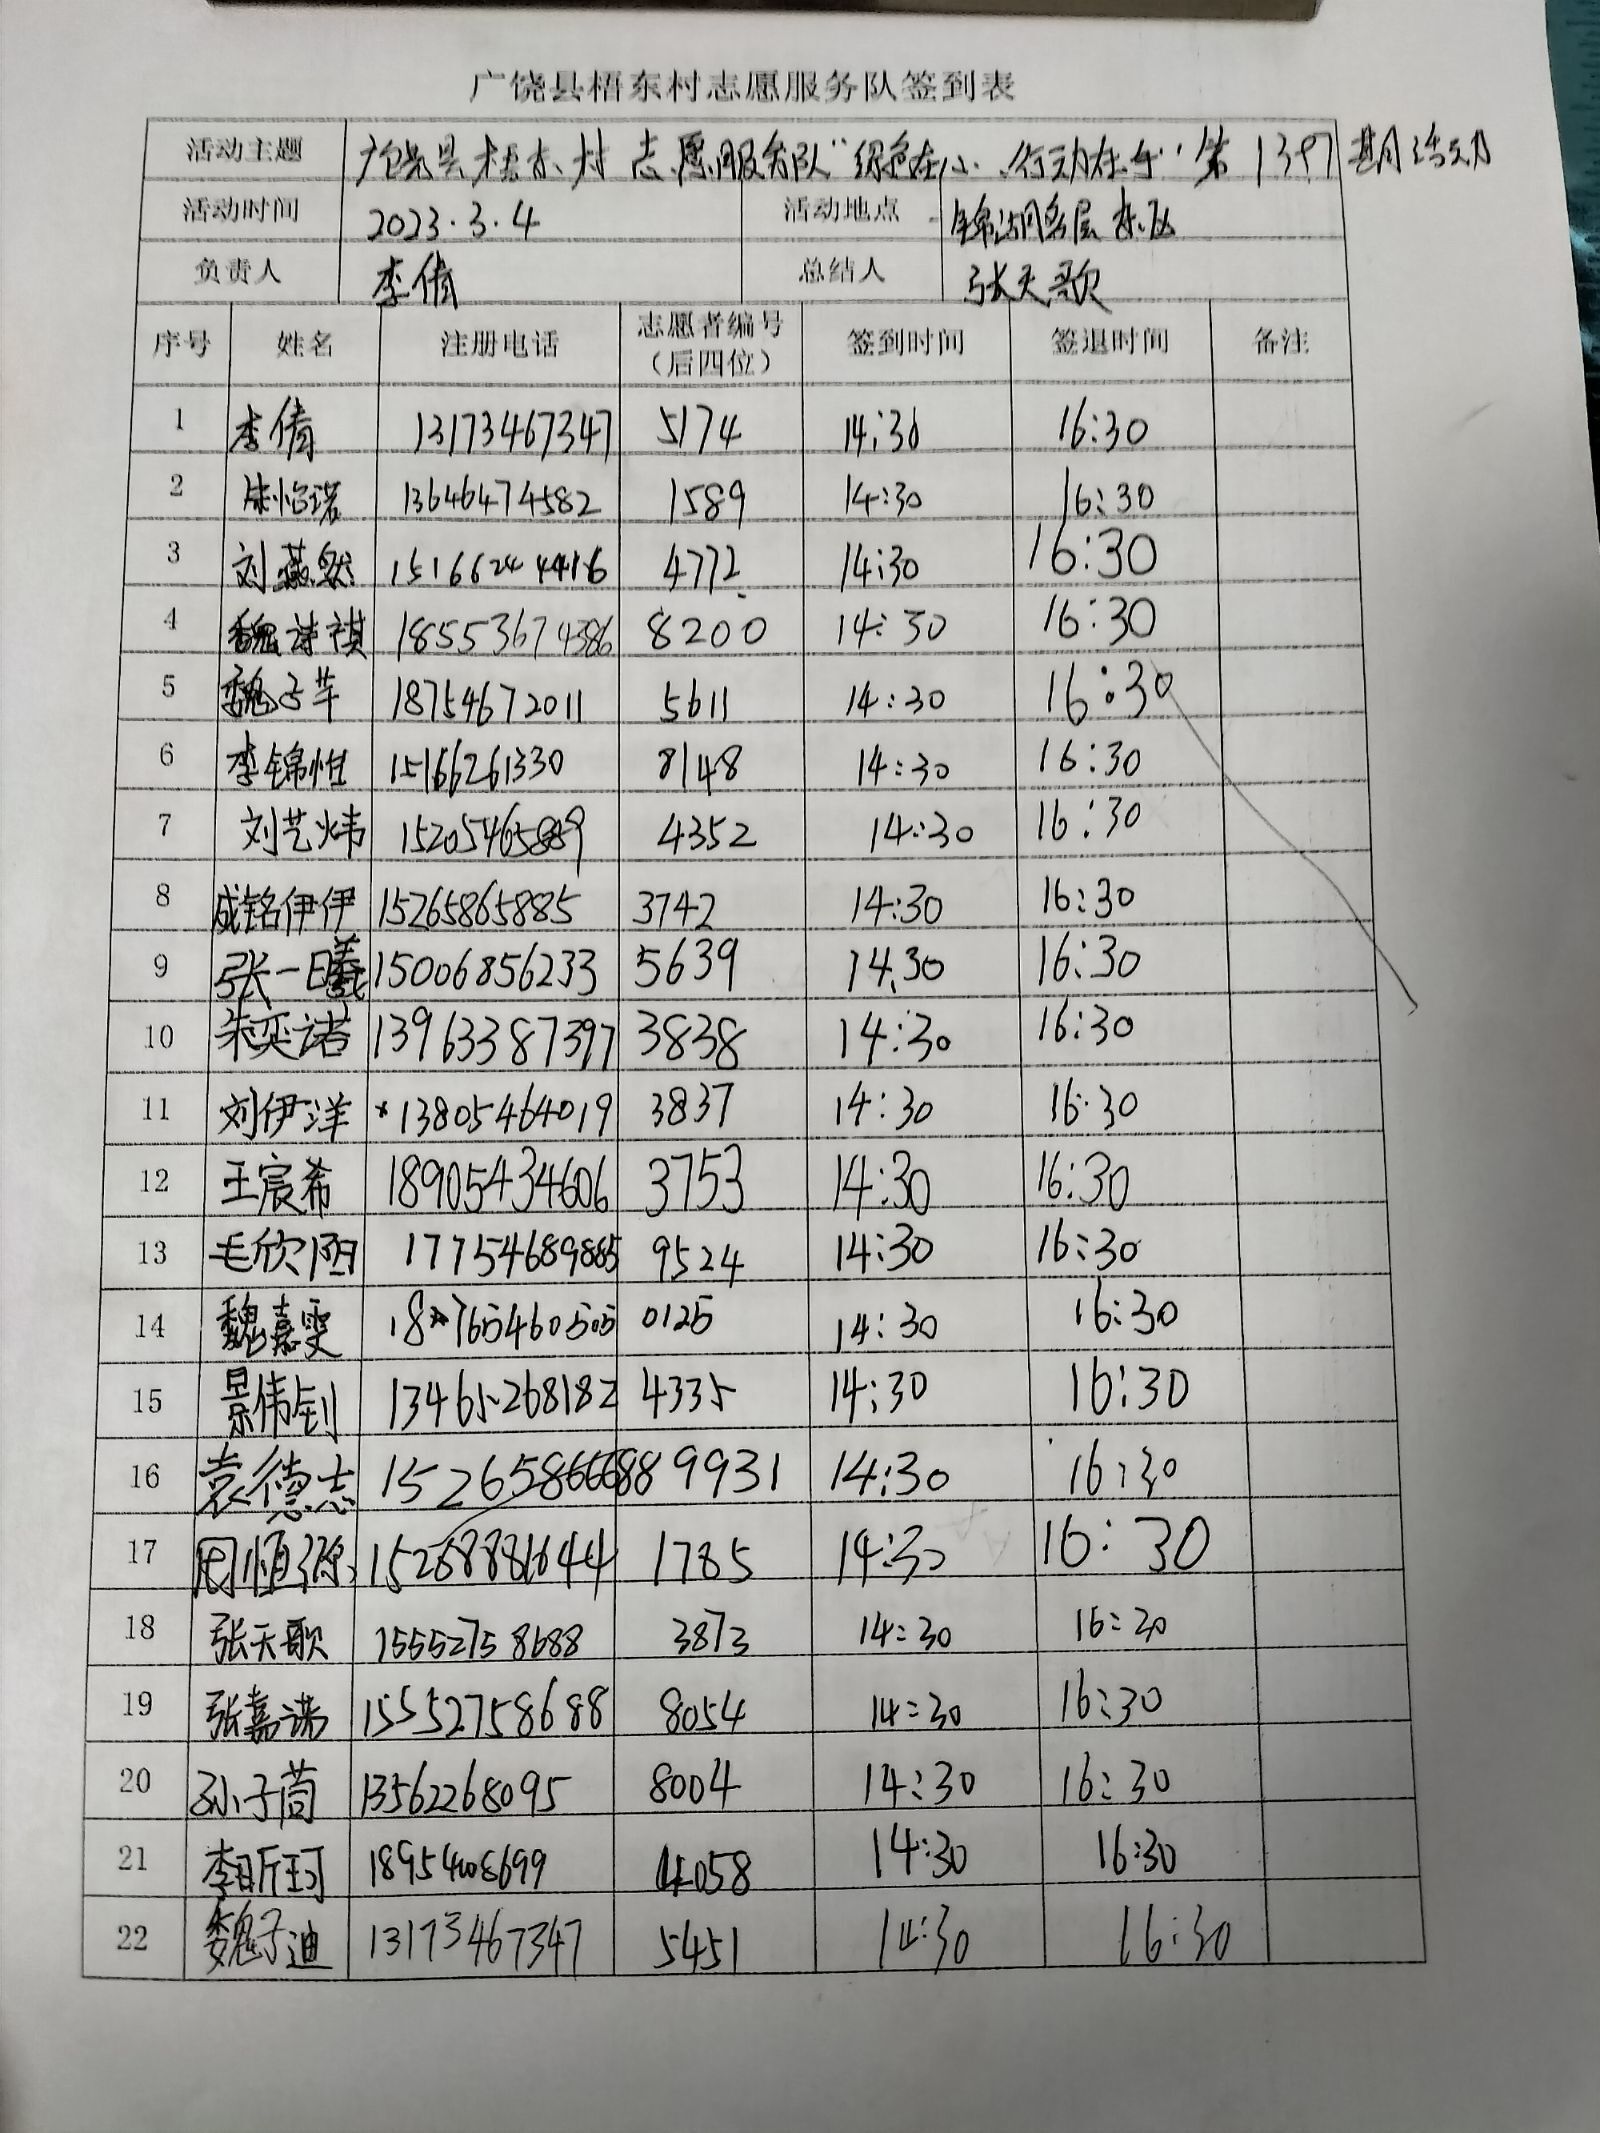 广饶县梧东村志愿服务队签到表
活动主题 广饶县梧东村志愿服务队“绿色在心、行动在手”第1397期活动
活动时间 2023.3.4 活动地点 锦湖多层东区
负责人 李倩 总结人 张天歌
序号 姓名 注册电话 志愿者编号（后四位） 签到时间 签退时间 备注
1 李倩 13173467347 5174 14:30 16:30
2 怡诺 13646474582 1589 14:30 16:30
3 刘燕然 15166244416 4772 14:30 16:30
4 魏诗祺 18553674386 8200 14:30 16:30
5 魏子芊 18754672011 5611 14:30 16:30
6 李锦恒 15166261330 8148 14:30 16:30
7 刘艺炜 15205465889 4352 14:30 16:30
8 成铭伊伊 15265865885 3742 14:30 16:30
9 张一曦 15006856233 5639 14:30 16:30
10 朱奕诺 13963387397 3838 14:30 16:30
11 刘伊洋 13805464019 3837 14:30 16:30
12 王宸希 18905434606 3753 14:30 16:30
13 毛欣阳 17754689885 9524 14:30 16:30
14 魏嘉雯 18765460505 0125 14:30 16:30
15 景伟钊 13465268182 4335 14:30 16:30
16 袁德志 15265866688 9931 14:30 16:30
17 周恒源 15268881644 1785 14:30 16:30
18 张天歌 15552758688 3873 14:30 16:30
19 张嘉诺 15552758688 8054 14:30 16:30
20 孙子茼 13562268095 8004 14:30 16:30
21 李昕珂 18954008699 4058 14:30 16:30
22 魏子迪 13173467347 5451 14:30 16:30